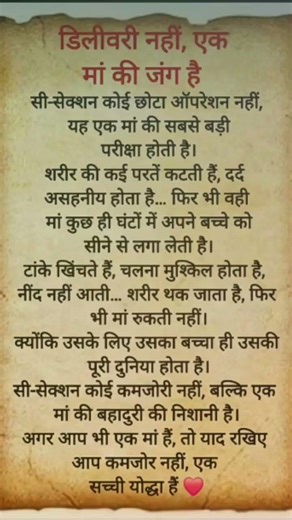 डिलीवरी नहीं, एक
मां की जंग है
सी-सेक्शन कोई छोटा ऑपरेशन नहीं,
यह एक मां की सबसे बड़ी
परीक्षा होती है।
शरीर की कई परतें कटती हैं, दर्द
असहनीय होता है... फिर भी वही
मां कुछ ही घंटों में अपने बच्चे को
सीने से लगा लेती है।
टांके खिंचते हैं, चलना मुश्किल होता है,
नींद नहीं आती... शरीर थक जाता है, फिर
भी मां रुकती नहीं।
क्योंकि उसके लिए उसका बच्चा ही उसकी
पूरी दुनिया होता है।
सी-सेक्शन कोई कमजोरी नहीं, बल्कि एक
मां की बहादुरी की निशानी है।
अगर आप भी एक मां हैं, तो याद रखिए
आप कमजोर नहीं, एक
सच्ची योद्धा हैं ❤️